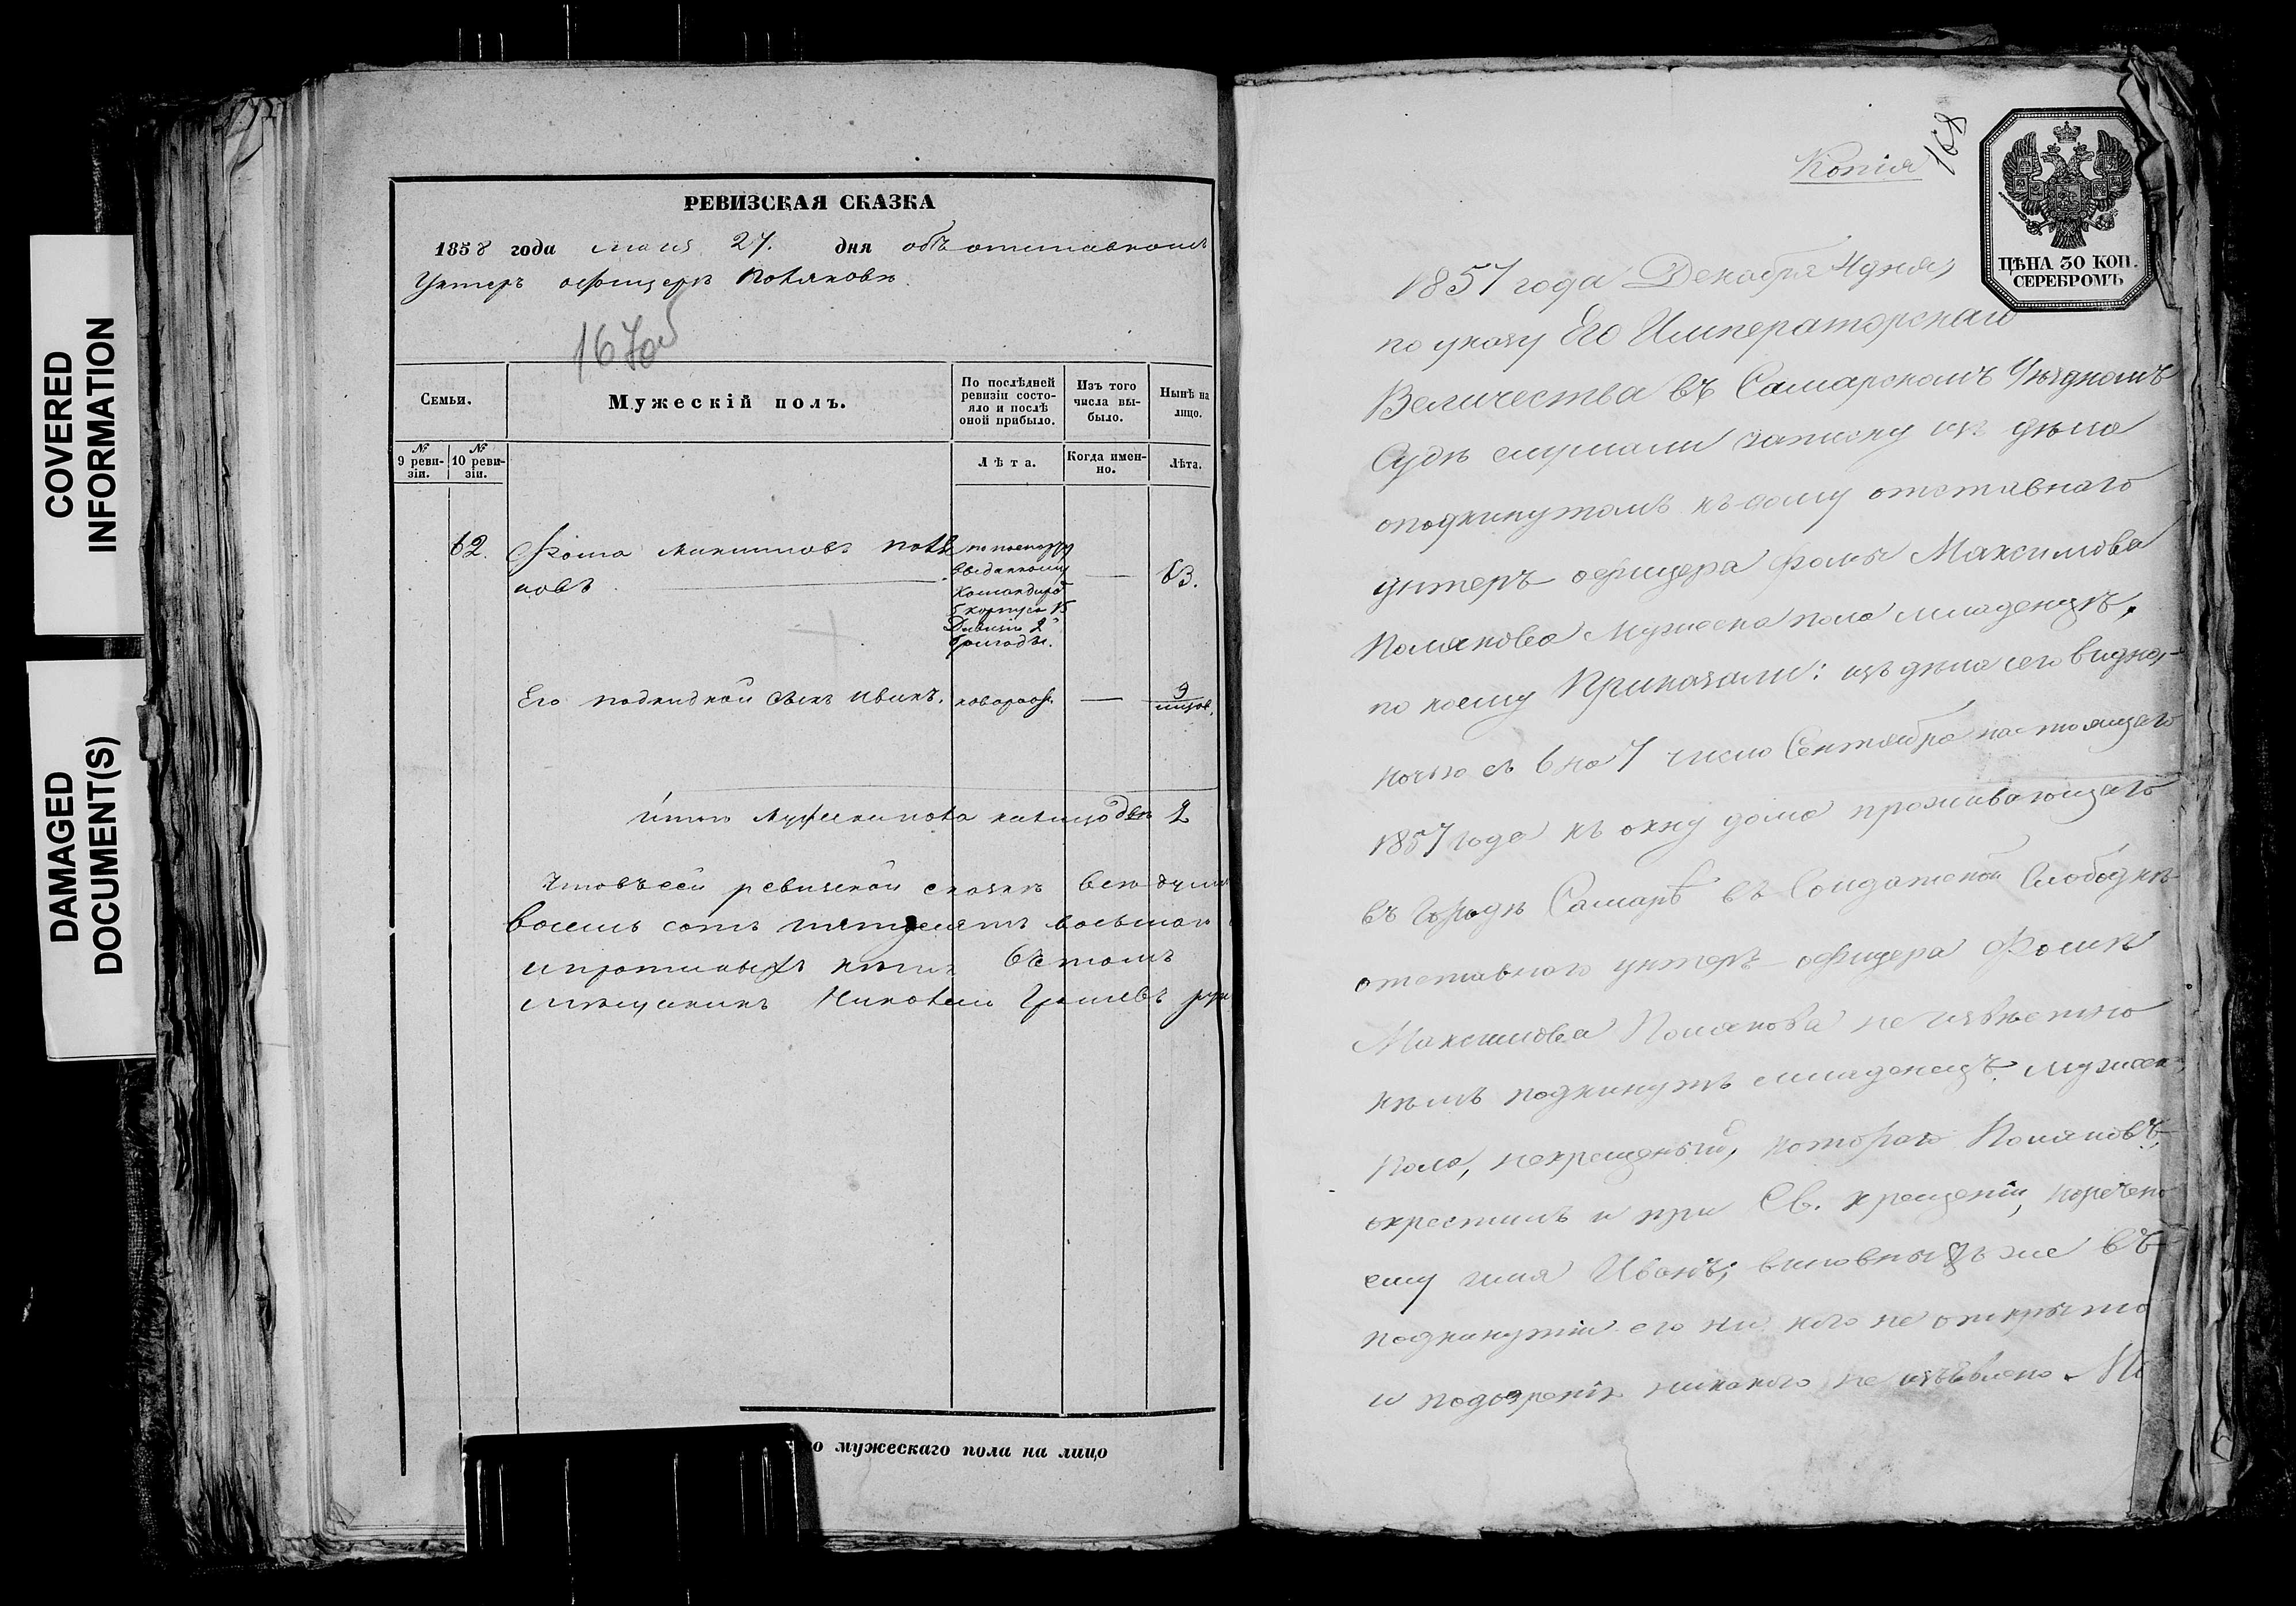 COVERED
INFORMATION
DAMAGED
DOCUMENT(S)
РЕВИЗСКАЯ СКАЗКА
1858 года мая 27. дня объ отставномъ
Унтеръ офицере Поляковѣ.
167об
Семьи.
Мужескій полъ.
По послѣдней
ревизіи состо-
яло и послѣ
оной прибыло.
Изъ того
числа вы-
было.
Нынѣ на
лицо.
№
9 реви-
зіи.
№
10 реви-
зіи.
Лѣта.
Когда имен-
но.
Лѣта.
62. Фома Максимовъ Поля
ковъ
по паспорту
выданному
Командиромъ
5 корпуса 15
Дивизіи 2й
бригады.
—
63.
Его подкидной сынъ Иванъ. новорож. — 9 мѣсяц.
Итого мужеска пола налицо две 2
Что въ сей ревизской сказкѣ
восемь сотъ пятдесятъ восьмого
въ томъ
мещанинъ Николай
о мужескаго пола на лицо
168
Копія
ЦѢНА 30 КОП.
СЕРЕБРОМЪ
1857 года Декабря 4 дня,
по указу Его Императорскаго
Величества въ Самарскомъ Уѣздномъ
Судѣ слушали записку изъ дѣла
о подкинутомъ къ дому отставнаго
унтеръ офицера Фомы Максимова
Полякова мужеска пола младенцѣ,
по коему Приказали: изъ дѣла сего видно,
ночью съ 6 на 7 число Сентября настоящаго
1857 года къ окну дома проживающаго
въ городѣ Самарѣ въ Солдатской Слободкѣ
отставнаго унтеръ-офицера Фомы
Максимова Полякова не извѣстно
кѣмъ подкинутъ младенецъ мужеска
пола, некрещеный, котораго Поляковъ,
окрестилъ и при Св. крещеніи, наречено
ему имя Иванъ; виновныхъ же въ
подкинутіи его ни кого не открыто
и подозренія никакого не изъявлено. По